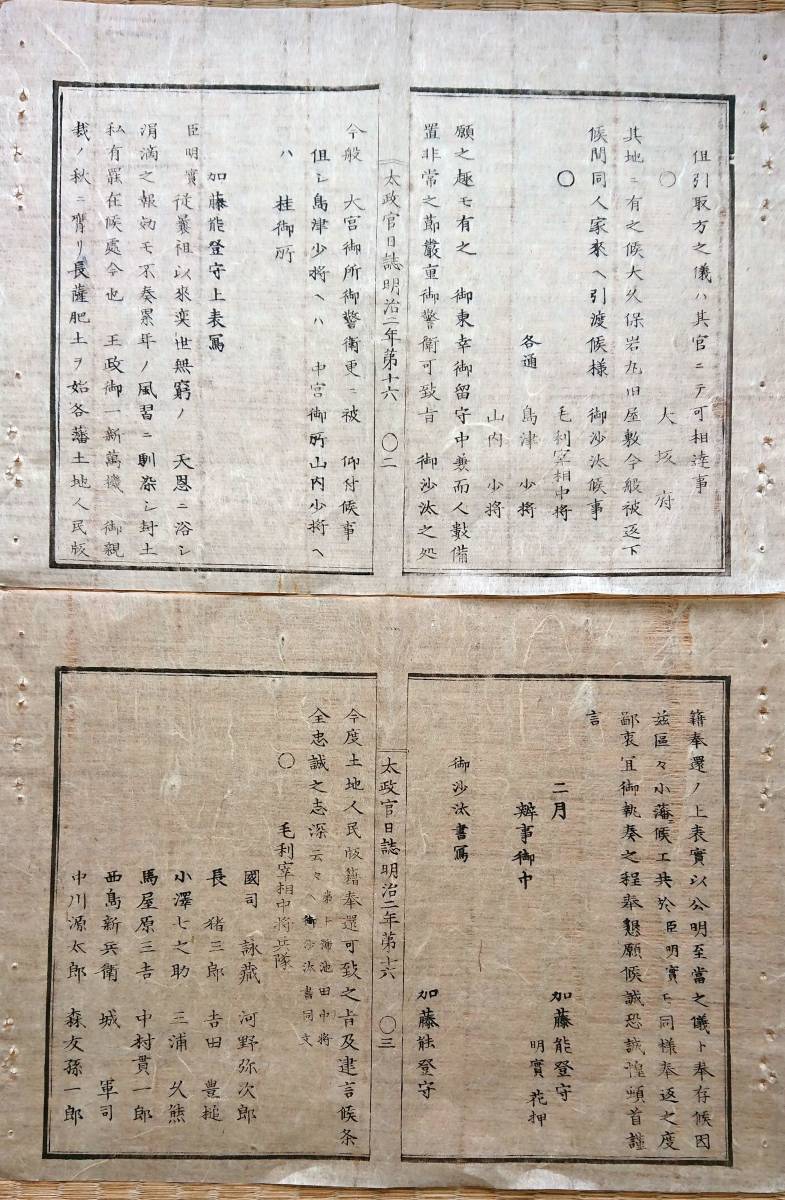 但引取方之儀ハ其官ニテ可相達事
〇　大坂府
其地ニ有之候大久保岩丸旧屋敷今般被返下
候間同人家来ヘ引渡候様　御沙汰候事
〇　毛利宰相中将
各通　島津　少将
山内　少将
願之趣モ有之　御東幸御留守中兼而人数備
置非常之節嚴重御警衛可致旨　御沙汰之処
太政官日誌明治二年第十六　〇二
今般　大宮御所御警衛更ニ被　仰付候事
但シ島津少将ヘハ　中宮御所山内少将ヘ
ハ　桂御所
加藤能登守上表寫
臣明實従曩祖以來奕世無窮ノ　天恩ニ浴シ
涓滴之報効モ不奏累年ノ風習ニ馴染シ封土
私有罷在候處今也　王政御一新萬機　御親
裁ノ秋ニ膺リ長薩肥土ヲ始各藩土地人民版
籍奉還ノ上表實以公明至當之儀ト奉存候因
茲區々小藩候エ共於臣明實モ同様奉返之度
鄙衷宜御執奏之程奉懇願候誠恐誠惶頓首謹
言
二月　加藤能登守
明實　花押
辨事御中
御沙汰書寫
加藤能登守
太政官日誌明治二年第十六　〇三
今度土地人民版籍奉還可致之旨及建言候条
全忠誠之志深云々ヘ御沙汰書同文
〇　毛利宰相中将兵隊
國司　詠藏　河野弥次郎
長　猪三郎　吉田　豊槌
小澤七之助　三浦　久熊
馬屋原三吉　中村貫一郎
西島新兵衛　城　軍司
中川源太郎　森友孫一郎